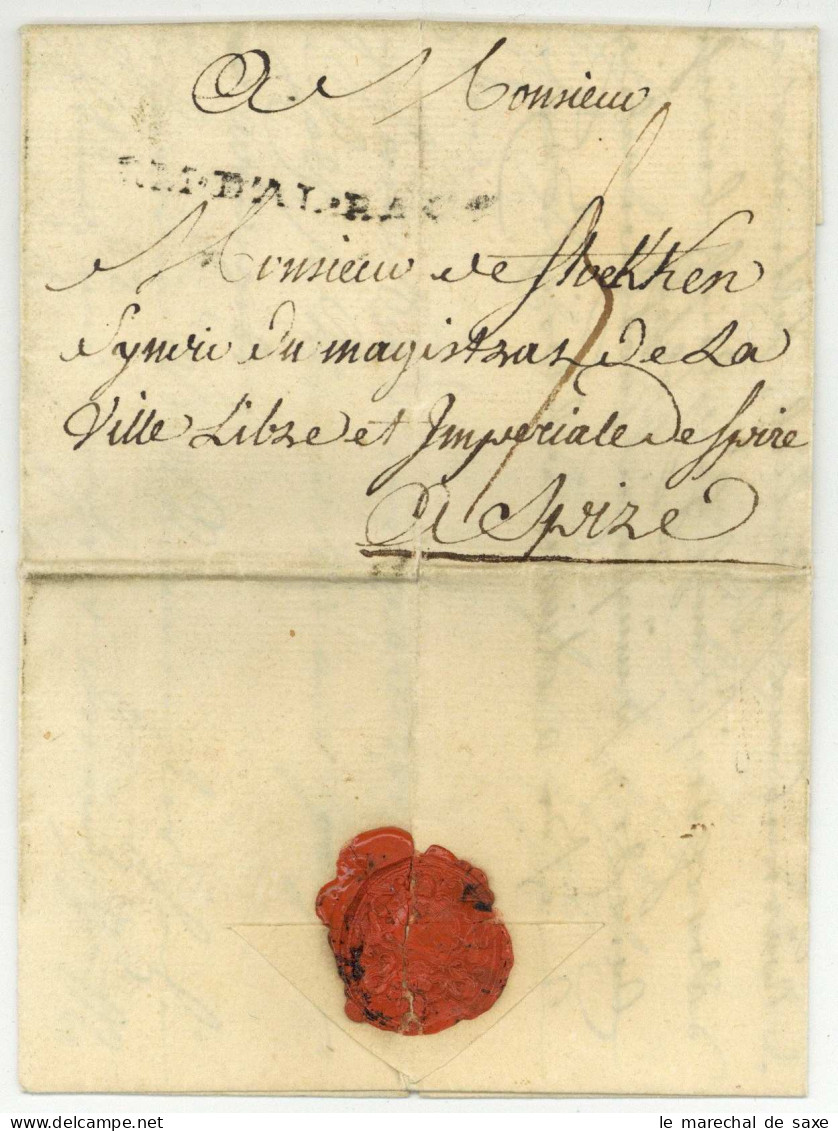 A Monsieur
D'ALSACE
Monsieur de Stoekken
Syndic du magistrat de La
Ville Libre et Imperiale de Spire
a Spire
le marechal de saxe